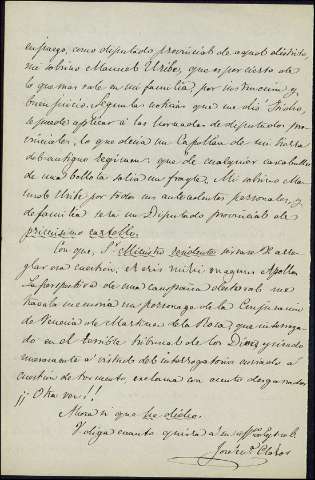 en juego, como diputado provincial de aquel distrito,
mi sobrino Manuel Uribe, que es por cierto de
lo que mas vale en mi familia, por instruccion y
buen juicio. Segun la noticia que me dió Trioho,
le puedo aplicar á las hornadas de diputados pro-
vinciales, lo que decia un Capellan de mi tierra
del antiguo regimen: que de cualquier cascabullo
de una bellota salia un frayle. Mi sobrino Ma-
nuel Uribe por todos sus antecedentes personales y
de familia sera un Diputado provincial de
primissimo cartello.
Con que, Sr. Ministro residente sirvase V. arre-
glar esa cuestion. Et eris mihi magnus Apollo.
La perspectiva de una campaña electoral me
trae á la memoria un personage de la Conjuracion
de Venecia de Martinez de la Rosa, que interroga-
do en el terrible tribunal de los Diez y siendo
nuevamente á virtud del interrogatorio enviado á
cuestion de tormento exclama con acento desgarrador
¡¡Otra vez!!
Ahora si que he dicho.
Y diga cuanto quiera á su affmo
José